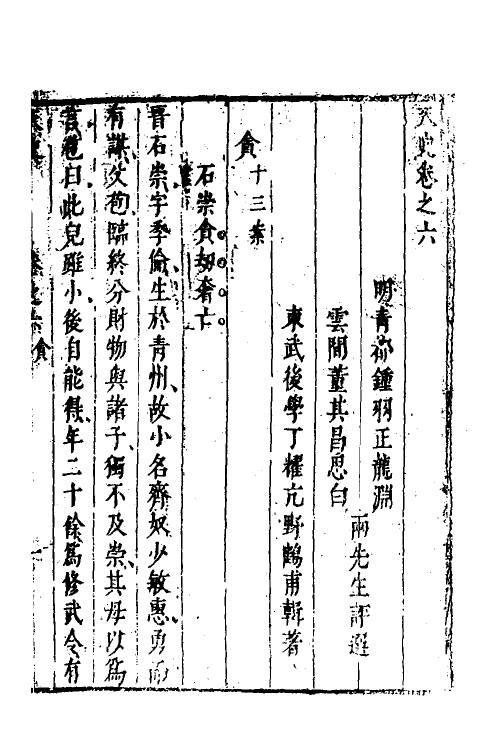 天史卷之六
明青祁鍾羽正龍淵
雲間董其昌思白
兩先生評選
東武後學丁耀亢野鶴甫輯著
貪十三案
石崇貪劫奢亡
晋石崇字季倫生於青州故小名齊奴少敏惠勇而
有謀父苞臨終分財物與諸子獨不及崇其母以爲
言苞曰此兒雖小後自能得年二十餘爲修武令有
卷之六 貪